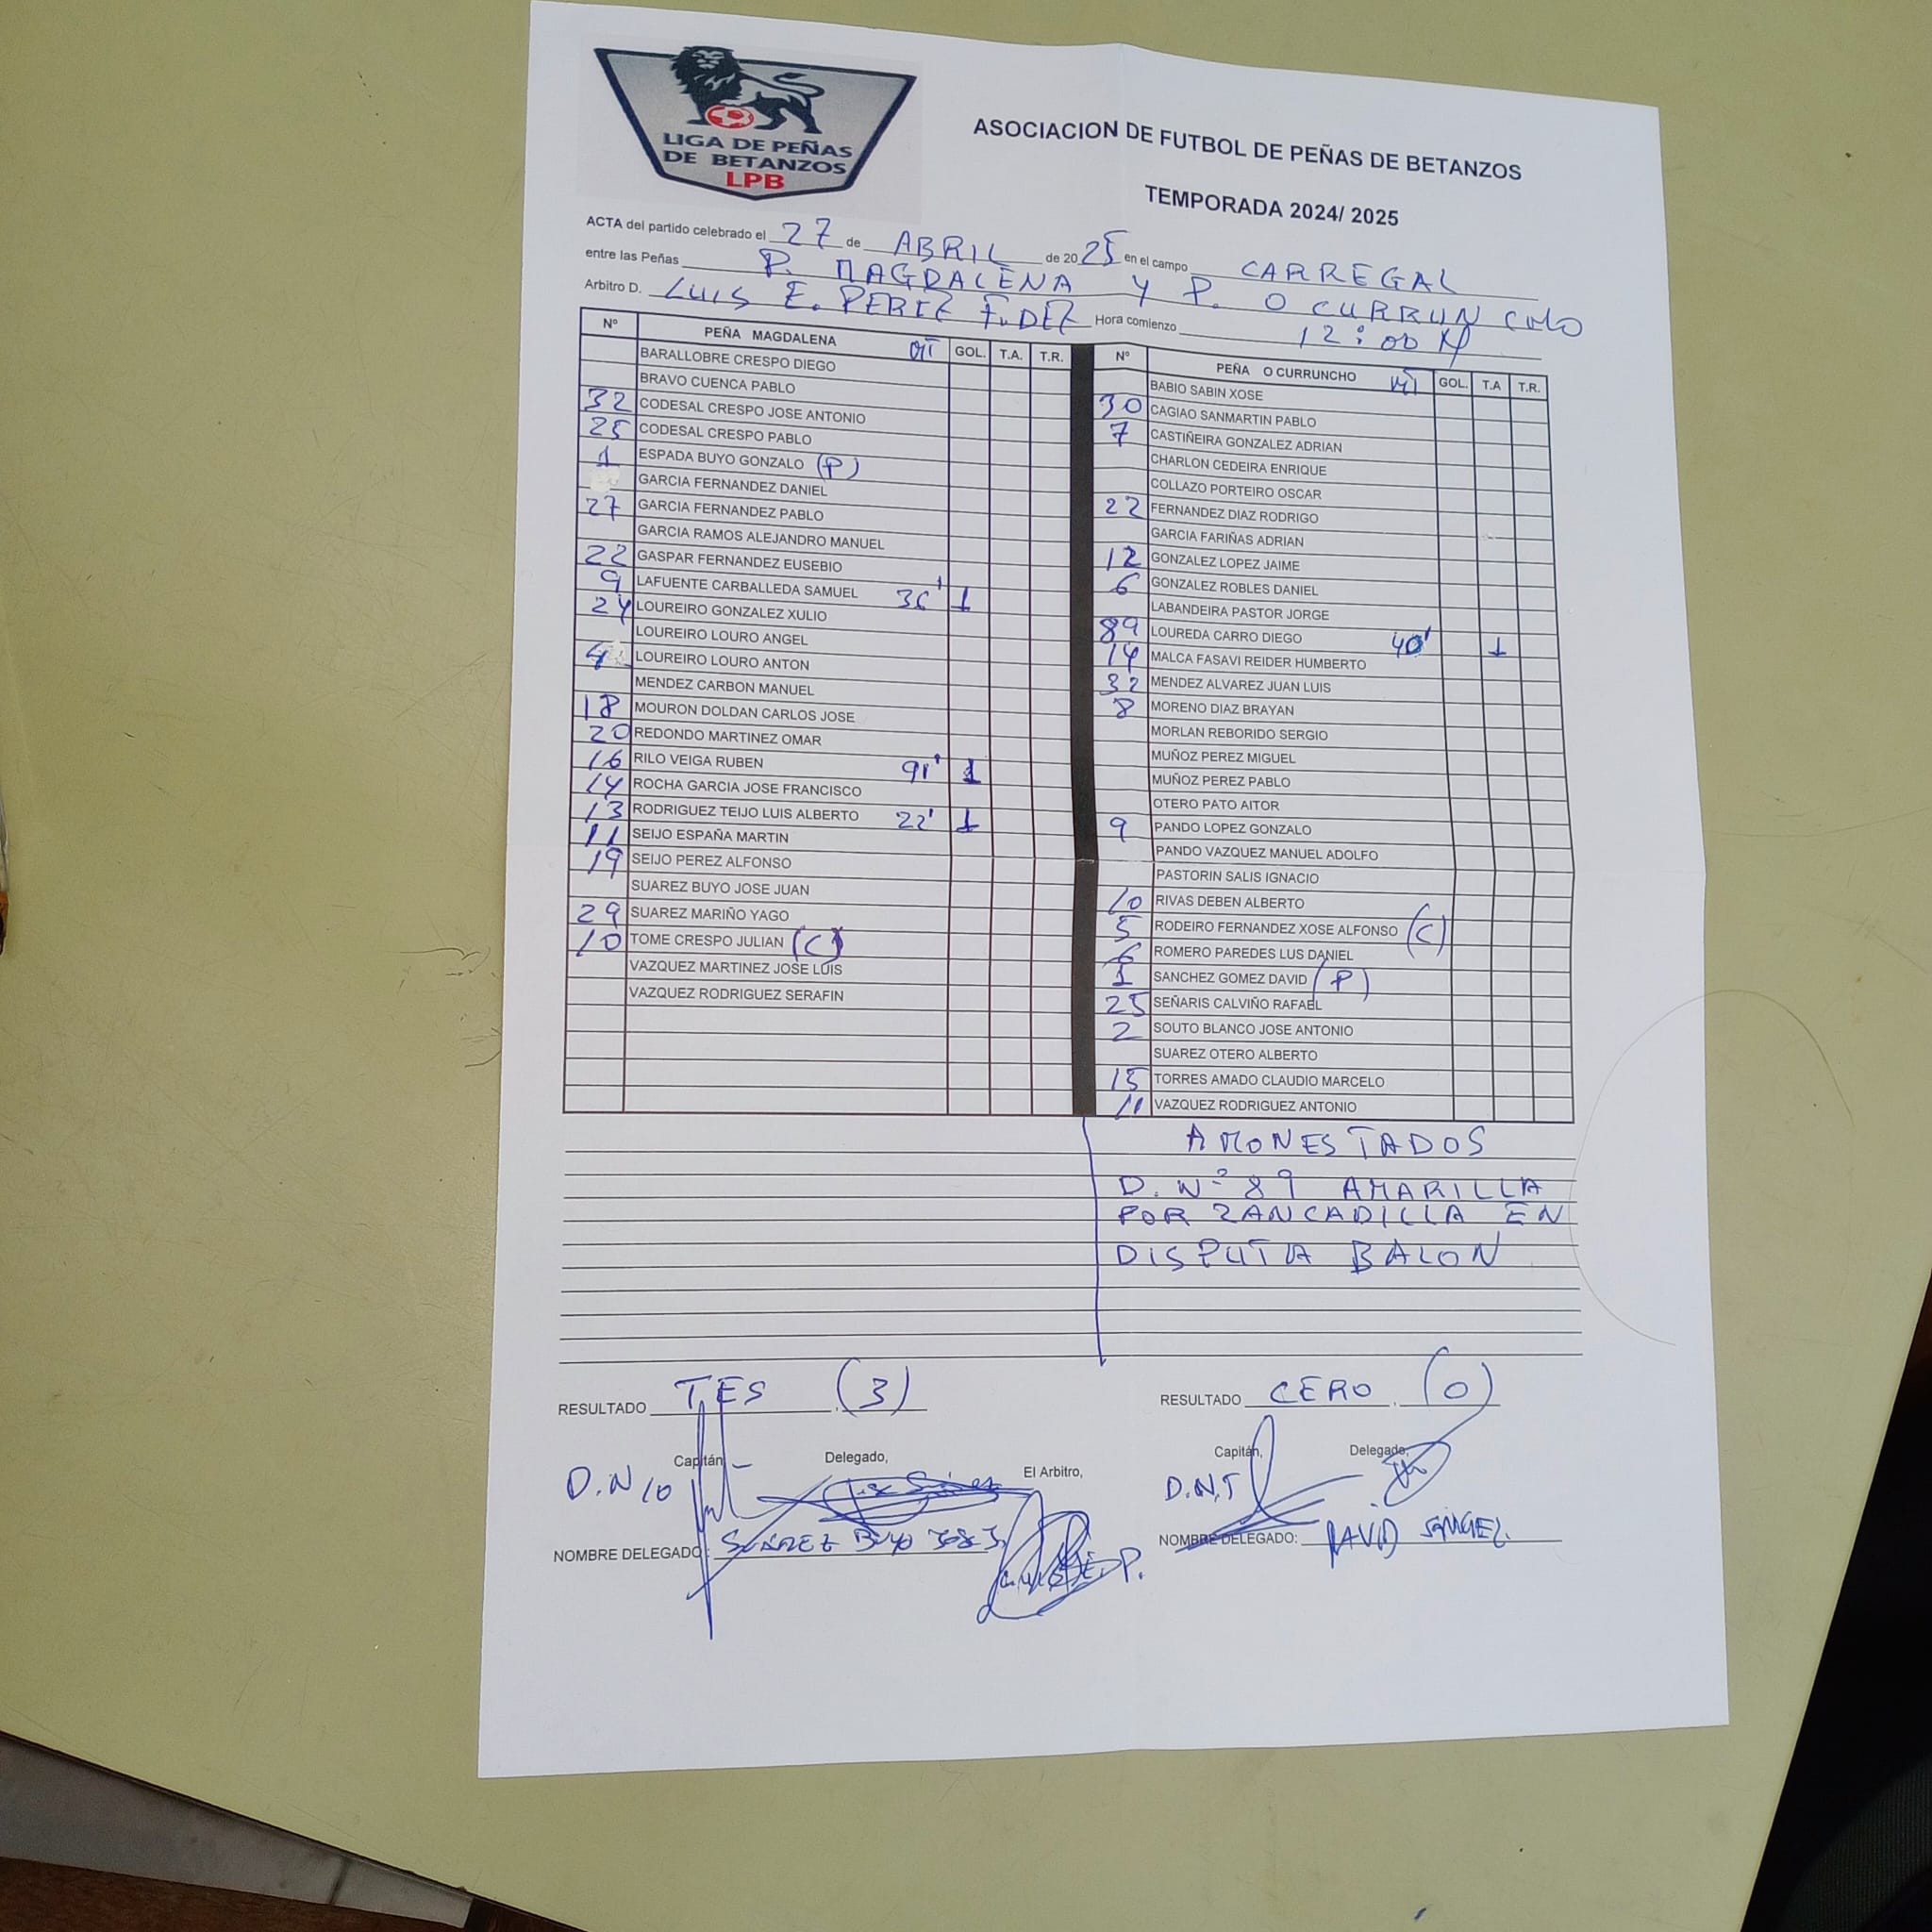 LIGA DE PEÑAS
DE BETANZOS
LPB
ASOCIACION DE FUTBOL DE PEÑAS DE BETANZOS
TEMPORADA 2024/ 2025
ACTA del partido celebrado el 27 de ABRIL de 2025 en el campo CARREGAL
entre las Peñas P. MAGDALENA Y P. O CURRUNCHO
Arbitro D. LUIS E. PEREZ F.DEZ Hora comienzo 12:00 H
Nº PEÑA MAGDALENA GOL. T.A. T.R.
BARALLOBRE CRESPO DIEGO
BRAVO CUENCA PABLO
32 CODESAL CRESPO JOSE ANTONIO
25 CODESAL CRESPO PABLO
1 ESPADA BUYO GONZALO (P)
GARCIA FERNANDEZ DANIEL
27 GARCIA FERNANDEZ PABLO
GARCIA RAMOS ALEJANDRO MANUEL
22 GASPAR FERNANDEZ EUSEBIO
9 LAFUENTE CARBALLEDA SAMUEL 36' 1
24 LOUREIRO GONZALEZ XULIO
LOUREIRO LOURO ANGEL
4 LOUREIRO LOURO ANTON
MENDEZ CARBON MANUEL
18 MOURON DOLDAN CARLOS JOSE
20 REDONDO MARTINEZ OMAR
16 RILO VEIGA RUBEN 91' 1
14 ROCHA GARCIA JOSE FRANCISCO
13 RODRIGUEZ TEIJO LUIS ALBERTO 22' 1
11 SEIJO ESPAÑA MARTIN
19 SEIJO PEREZ ALFONSO
SUAREZ BUYO JOSE JUAN
29 SUAREZ MARIÑO YAGO
10 TOME CRESPO JULIAN (C)
VAZQUEZ MARTINEZ JOSE LUIS
VAZQUEZ RODRIGUEZ SERAFIN
Nº PEÑA O CURRUNCHO GOL. T.A T.R.
BABIO SABIN XOSE
30 CAGIAO SANMARTIN PABLO
7 CASTIÑEIRA GONZALEZ ADRIAN
CHARLON CEDEIRA ENRIQUE
COLLAZO PORTEIRO OSCAR
22 FERNANDEZ DIAZ RODRIGO
GARCIA FARIÑAS ADRIAN
12 GONZALEZ LOPEZ JAIME
6 GONZALEZ ROBLES DANIEL
LABANDEIRA PASTOR JORGE
89 LOUREDA CARRO DIEGO 40' 1
14 MALCA FASAVI REIDER HUMBERTO
32 MENDEZ ALVAREZ JUAN LUIS
8 MORENO DIAZ BRAYAN
MORLAN REBORIDO SERGIO
MUÑOZ PEREZ MIGUEL
MUÑOZ PEREZ PABLO
OTERO PATO AITOR
9 PANDO LOPEZ GONZALO
PANDO VAZQUEZ MANUEL ADOLFO
PASTORIN SALIS IGNACIO
10 RIVAS DEBEN ALBERTO
5 RODEIRO FERNANDEZ XOSE ALFONSO (C)
6 ROMERO PAREDES LUS DANIEL
1 SANCHEZ GOMEZ DAVID (P)
25 SEÑARIS CALVIÑO RAFAEL
2 SOUTO BLANCO JOSE ANTONIO
SUAREZ OTERO ALBERTO
15 TORRES AMADO CLAUDIO MARCELO
11 VAZQUEZ RODRIGUEZ ANTONIO
AMONESTADOS
D. Nº 89 AMARILLA
POR ZANCADILLA EN
DISPUTA BALON
RESULTADO TES (3)
RESULTADO CERO (0)
Capitán, Delegado, El Arbitro,
D.N 10
Capitán, Delegado,
D.N.5
NOMBRE DELEGADO: SUAREZ BUYO
NOMBRE DELEGADO: DAVID